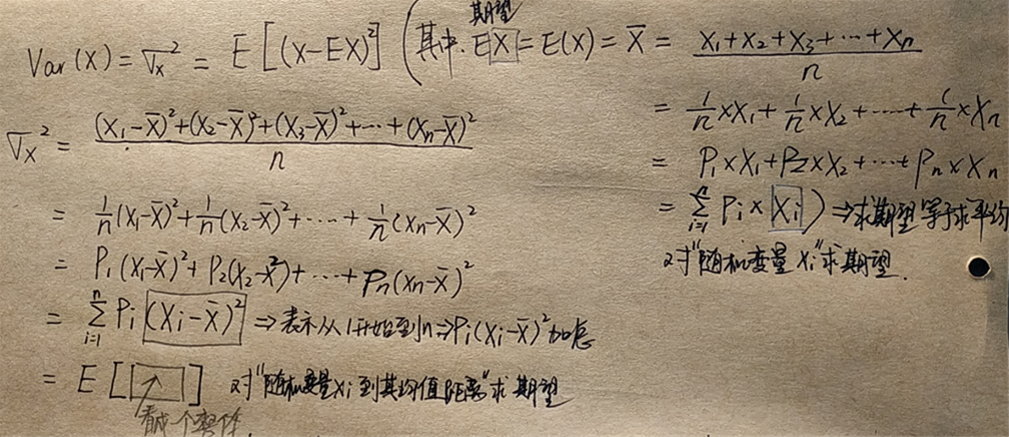 期望
Var(X) = σx² = E[(X-EX)²] (其中. EX = E(X) = X̄ = (X₁+X₂+X₃+…+Xn)/n
= 1/n×X₁ + 1/n×X₂ + …… + 1/n×Xn
= P₁×X₁+P₂×X₂+……+Pn×Xn
= Σᵢ₌₁ⁿ Pi×Xi) ⇒ 求期望等于求平均
对"随机变量Xi"求期望.
σx² = ((X₁-X̄)²+(X₂-X̄)²+(X₃-X̄)²+…+(Xn-X̄)²)/n
= 1/n(X₁-X̄)²+1/n(X₂-X̄)²+……+1/n(Xn-X̄)²
= P₁(X₁-X̄)²+P₂(X₂-X̄²)+……+Pn(Xn-X̄)²
= Σᵢ₌₁ⁿ Pi(Xi-X̄)² ⇒ 表示从1开始到n ⇒ Pi(Xi-X̄)²加总
= E[□] 对"随机变量Xi到其均值距离"求期望
看成一个整体.